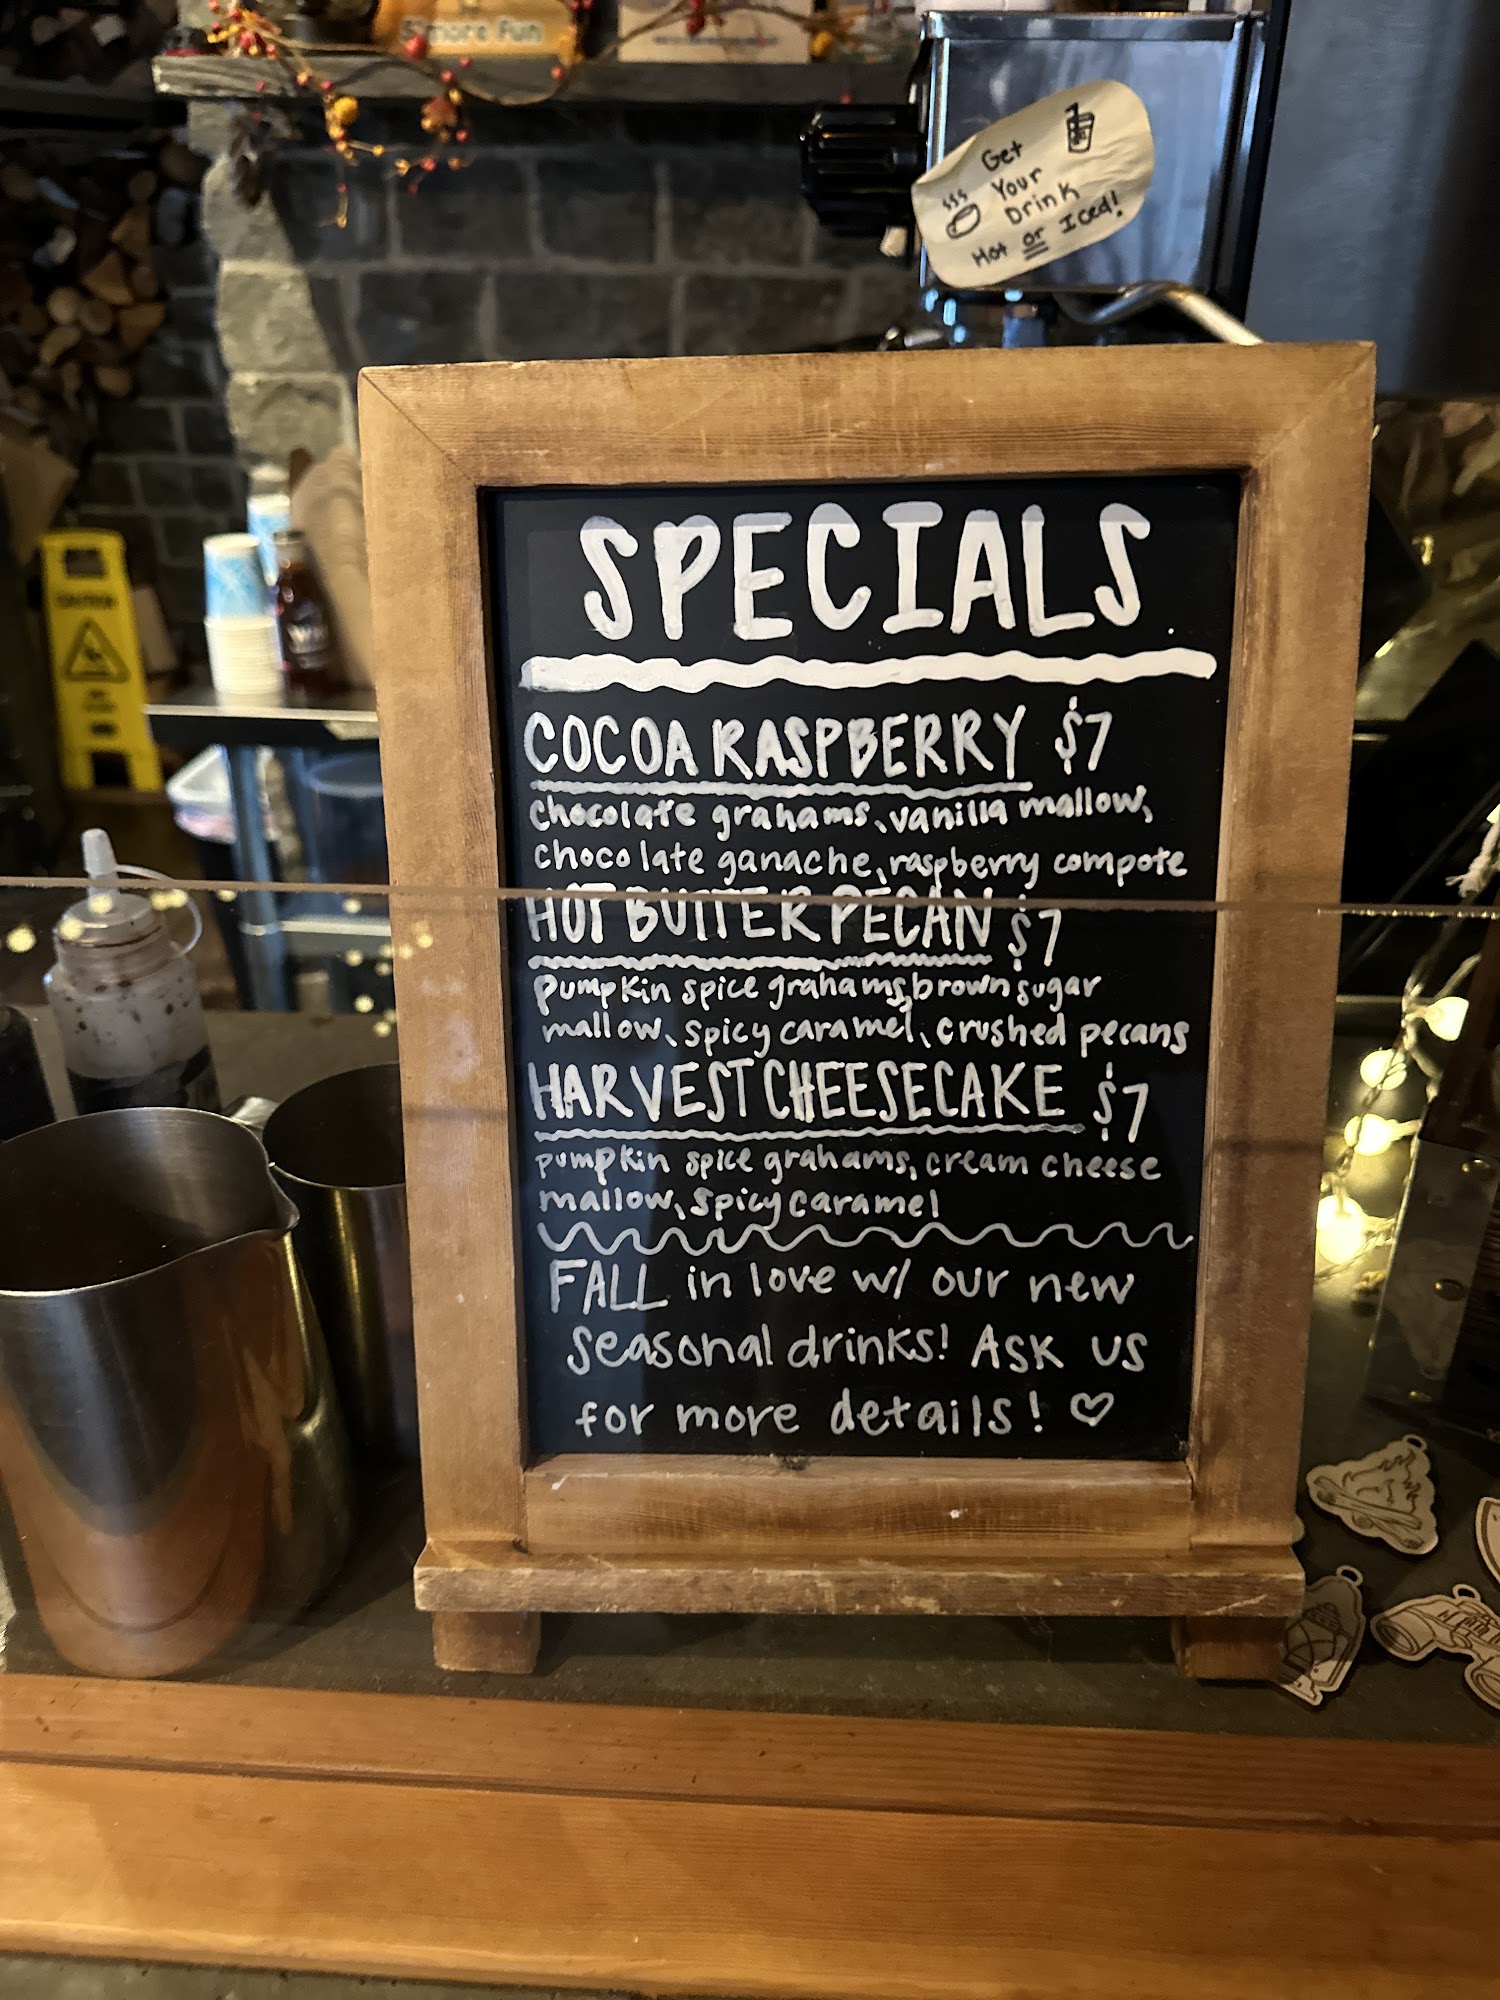 S'more Fun
Get
Your
Drink
Hot or Iced!
SPECIALS
COCOA RASPBERRY $7
chocolate grahams, vanilla mallow,
chocolate ganache, raspberry compote
HOT BUTTER PECAN $7
pumpkin spice grahams, brown sugar
mallow, spicy caramel, crushed pecans
HARVEST CHEESECAKE $7
pumpkin spice grahams, cream cheese
mallow, spicy caramel
FALL in love w/ our new
seasonal drinks! Ask us
for more details! ♡